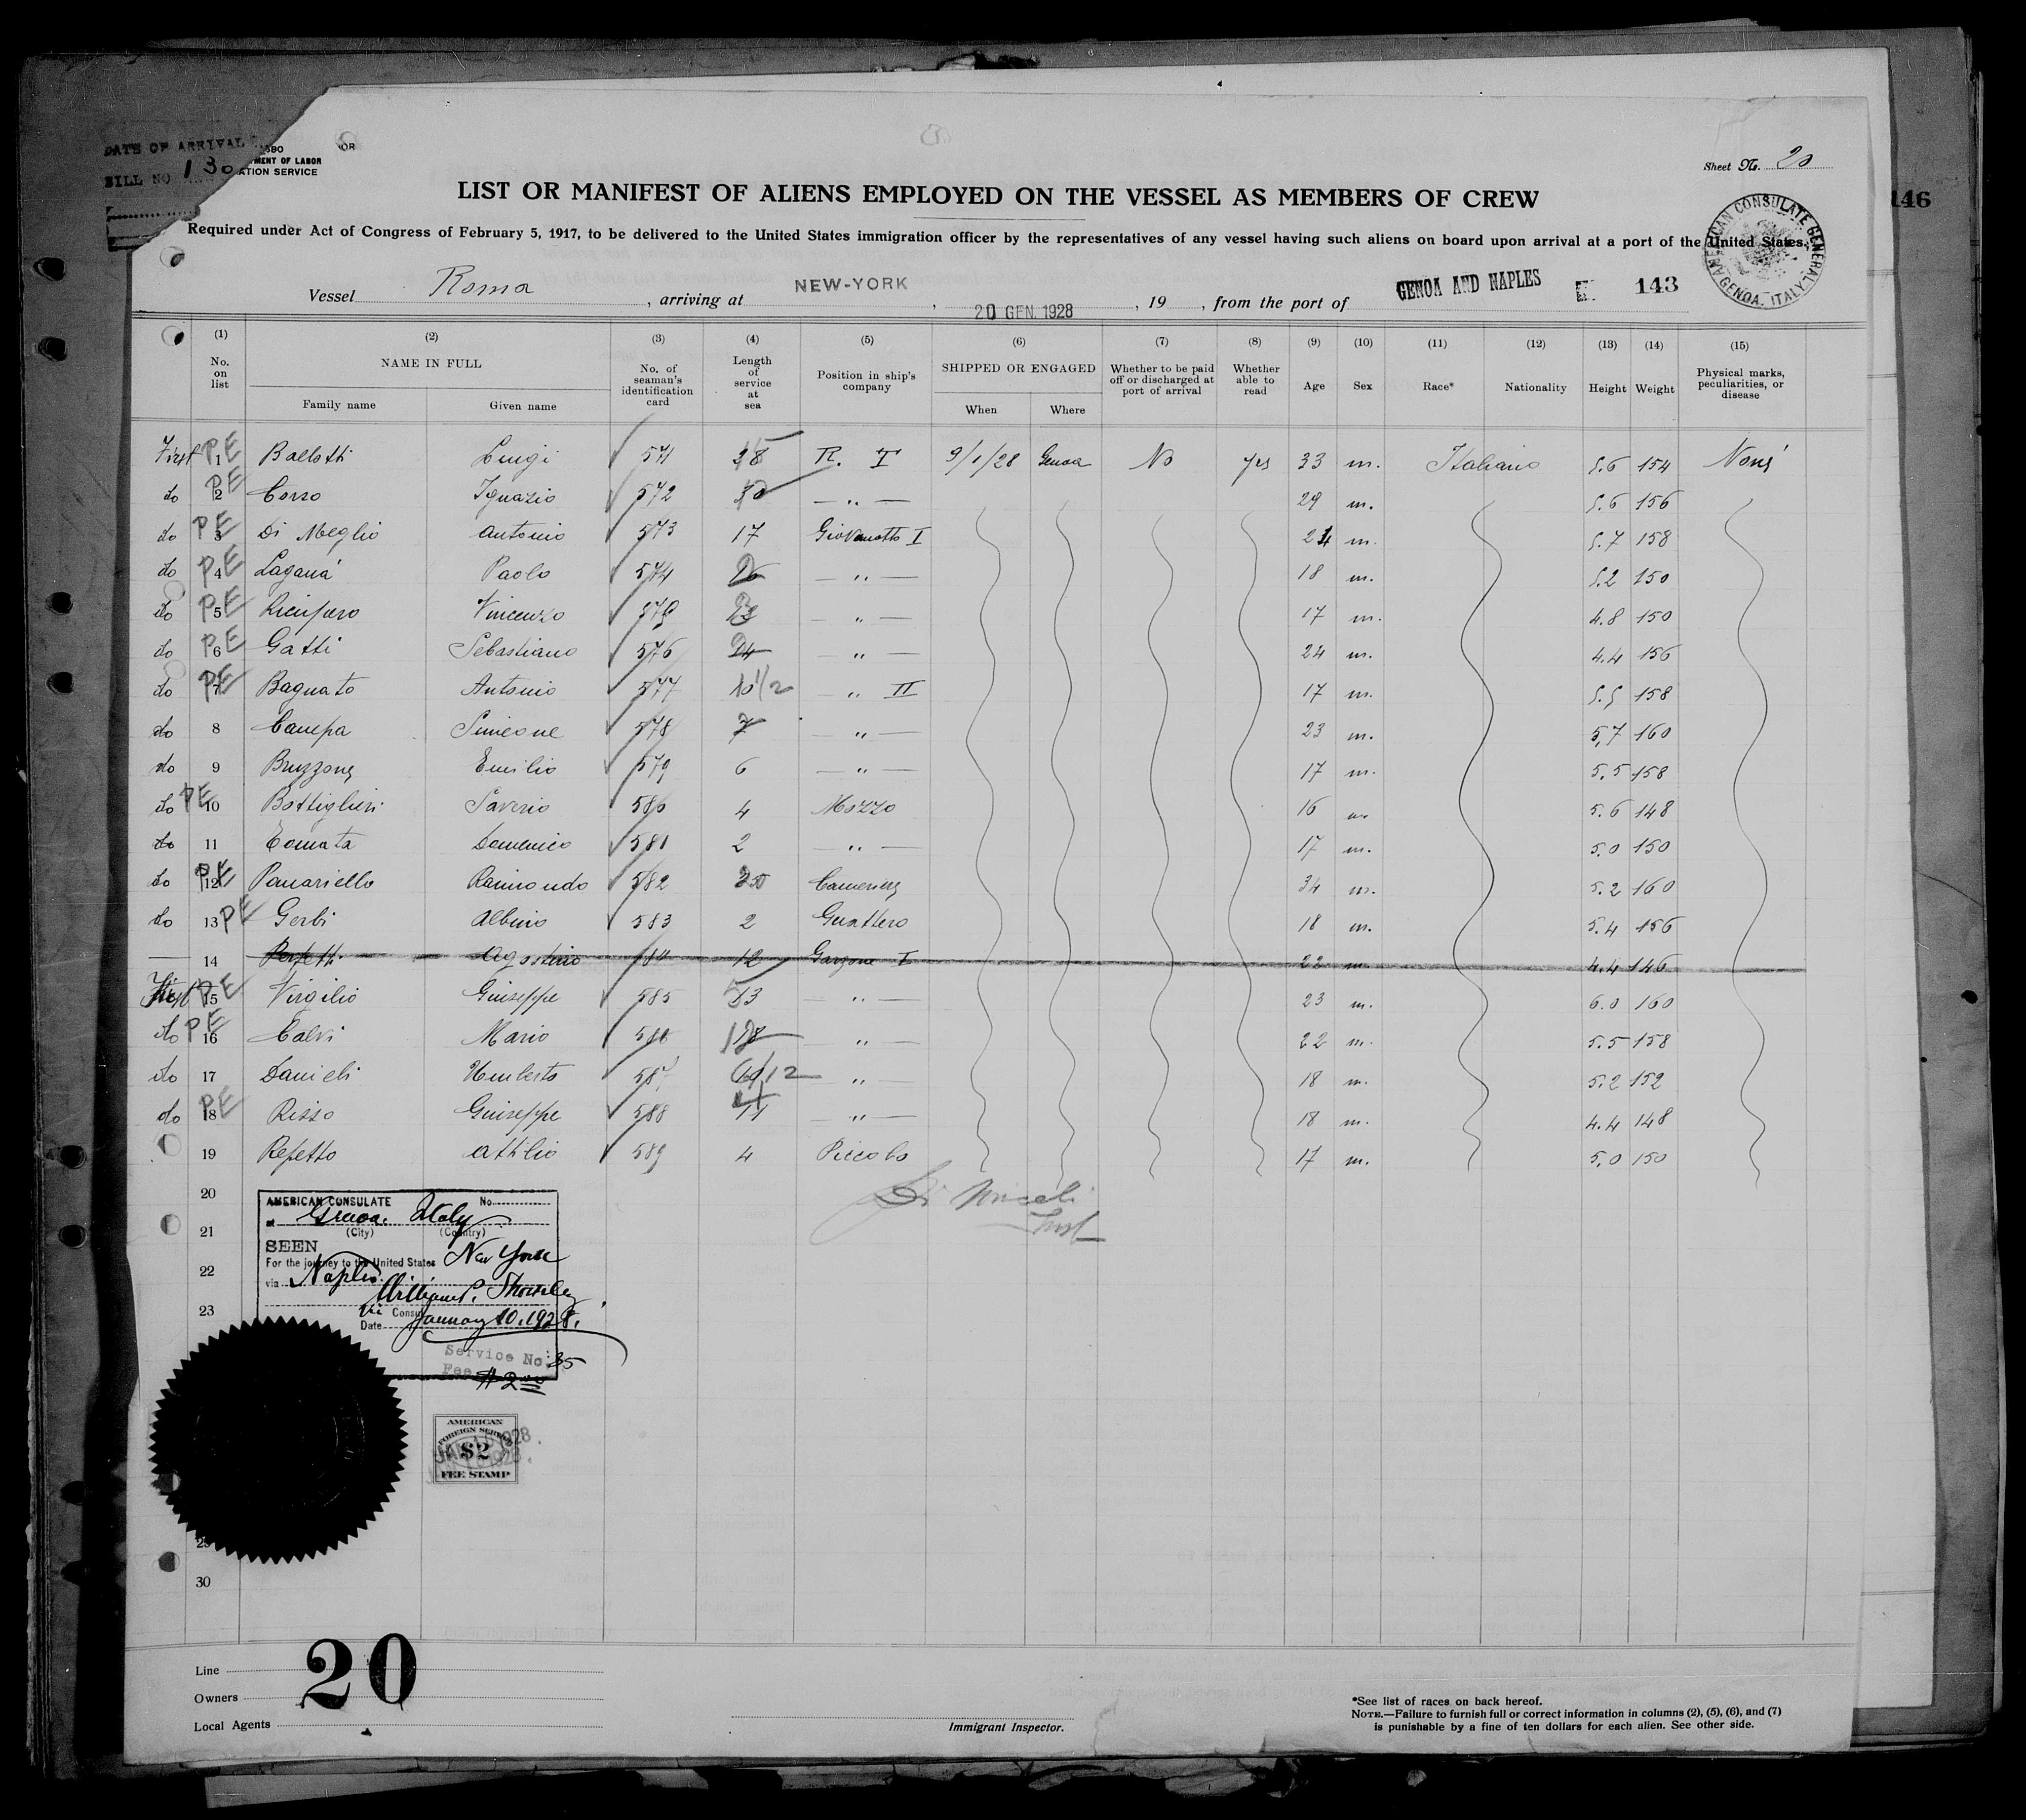 DATE OF ARRIVAL
BILL NO 130
MENT OF LABOR
ATION SERVICE
Sheet No. 20
LIST OR MANIFEST OF ALIENS EMPLOYED ON THE VESSEL AS MEMBERS OF CREW
146
Required under Act of Congress of February 5, 1917, to be delivered to the United States immigration officer by the representatives of any vessel having such aliens on board upon arrival at a port of the United States.
AMERICAN CONSULATE GENERAL GENOA, ITALY
Vessel Roma, arriving at NEW-YORK, 20 GEN. 1928, 19, from the port of GENOA AND NAPLES 143
(1) (2) (3) (4) (5) (6) (7) (8) (9) (10) (11) (12) (13) (14) (15)
No. on list NAME IN FULL Family name Given name No. of seaman's identification card Length of service at sea Position in ship's company SHIPPED OR ENGAGED When Where Whether to be paid off or discharged at port of arrival Whether able to read Age Sex Race* Nationality Height Weight Physical marks, peculiarities, or disease
First PE 1 Ballotti Luigi 571 R. T 9/1/28 Genoa No yes 33 m. Italiano 5.6 154 None
do PE 2 Corso Ignazio 572 — „ — 29 m. 5.6 156
do PE 3 Di Meglio Antonio 573 17 Giovanotto I m. 5.7 158
do PE 4 Laganà Paolo 574 — „ — 18 m. 5.2 150
do PE 5 Vincenzo 575 — „ — 17 m. 4.8 150
do PE 6 Gatti Sebastiano 576 24 — „ — 24 m. 4.4 156
do PE 7 Bagnato Antonio 577 10 1/2 — „ II 17 m. 5.5 158
do 8 Campa Simeone 578 7 — „ — 23 m. 5,7 160
do 9 Bruzzone Emilio 579 6 — „ — 17 m. 5.5 158
do PE 10 Bottiglieri Saverio 580 4 Mozzo 16 m. 5.6 148
do 11 Domenico 581 2 — „ — 17 m. 5.0 150
do PE 12 Panariello Raimondo 582 Cameriere 34 m. 5.2 160
do 13 PE Gerbi Albino 583 2 Guattero 18 m. 5.4 156
— 14 Perfetti Agostino 584 12 Garzone I 22 m 4.4 146
First PE 15 Virgilio Giuseppe 585 — „ — 23 m. 6.0 160
do PE 16 Calvi Mario 586 — „ — 22 m. 5.5 158
do 17 Danieli Umberto 587 — „ — 18 m. 5.2 152
do PE 18 Risso Giuseppe 588 — „ — 18 m. 4.4 148
19 Repetto Attilio 589 4 Piccolo 17 m. 5.0 150
20
21
22
23
AMERICAN CONSULATE No.
at Genoa. Italy
(City) (Country)
SEEN
For the journey to the United States New York
via Naples.
Vice Consul
Date January 10, 1928.
Service No: 35
Fee $2.00
AMERICAN
FOREIGN SERVICE
$2
FEE STAMP
30
Line
Owners
Local Agents
20
Immigrant Inspector.
*See list of races on back hereof.
NOTE.—Failure to furnish full or correct information in columns (2), (5), (6), and (7)
is punishable by a fine of ten dollars for each alien. See other side.